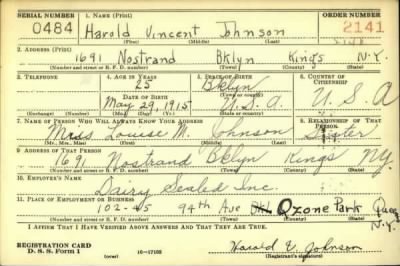 SERIAL NUMBER 1. NAME (Print) ORDER NUMBER
0484 Harold Vincent Johnson 2141
(First) (Middle) (Last)
2. ADDRESS (Print)
1691 Nostrand Bklyn Kings N.Y.
(Number and street or R. F. D. number) (Town) (County) (State)
3. TELEPHONE 4. AGE IN YEARS 5. PLACE OF BIRTH 6. COUNTRY OF CITIZENSHIP
25 Bklyn
DATE OF BIRTH (Town or county)
May 29, 1915 U.S.A. U.S.A
(Exchange) (Number) (Mo.) (Day) (Yr.) (State or country)
7. NAME OF PERSON WHO WILL ALWAYS KNOW YOUR ADDRESS 8. RELATIONSHIP OF THAT PERSON
Miss Louise M. Johnson Sister
(Mr., Mrs., Miss) (First) (Middle) (Last)
9. ADDRESS OF THAT PERSON
1691 Nostrand Bklyn Kings N.Y.
(Number and street or R. F. D. number) (Town) (County) (State)
10. EMPLOYER'S NAME
Dairy Sealed Inc.
11. PLACE OF EMPLOYMENT OR BUSINESS
102-45 94th Ave Ozone Park Queens
N.Y.
(Number and street or R. F. D. number) (Town) (County) (State)
I AFFIRM THAT I HAVE VERIFIED ABOVE ANSWERS AND THAT THEY ARE TRUE.
REGISTRATION CARD
D. S. S. Form 1 (over) 16-17105 Harold V. Johnson
(Registrant's signature)